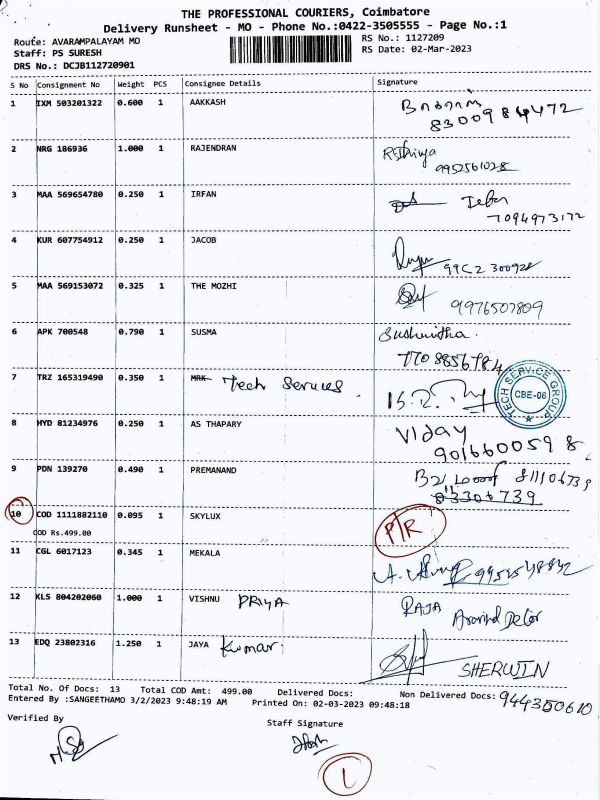 THE PROFESSIONAL COURIERS, Coimbatore
Delivery Runsheet - MO - Phone No.:0422-3505555 - Page No.:1
Route: AVARAMPALAYAM MO
RS No.: 1127209
Staff: PS SURESH
RS Date: 02-Mar-2023
DRS No.: DCJB112720901
S No Consignment No Weight PCS Consignee Details Signature
1 IXM 503201322 0.600 1 AAKKASH
2 NRG 186936 1.000 1 RAJENDRAN
9952561028
3 MAA 569654780 0.250 1 IRFAN
7094973172
4 KUR 607754912 0.250 1 JACOB
5 MAA 569153072 0.325 1 THE MOZHI
9976507809
6 APK 700548 0.790 1 SUSMA Sushmitha.
7708856784
7 TRZ 165319490 0.350 1 MRK Tech Services.
TECH SERVICE GROUP
CBE-06
8 HYD 81234976 0.250 1 AS THAPARY Viday
9016600598
9 PDN 139270 0.490 1 PREMANAND 811106739
83306739
10 COD 1111882110 0.095 1 SKYLUX
COD Rs.499.00
11 CGL 6017123 0.345 1 MEKALA
12 KLS 804202060 1.000 1 VISHNU PRIYA RAJA
13 EDQ 23802316 1.250 1 JAYA Kumar SHERWIN
Total No. Of Docs: 13 Total COD Amt: 499.00 Delivered Docs: Non Delivered Docs:
Entered By :SANGEETHAMO 3/2/2023 9:48:19 AM Printed On: 02-03-2023 09:48:18
Verified By
Staff Signature
1